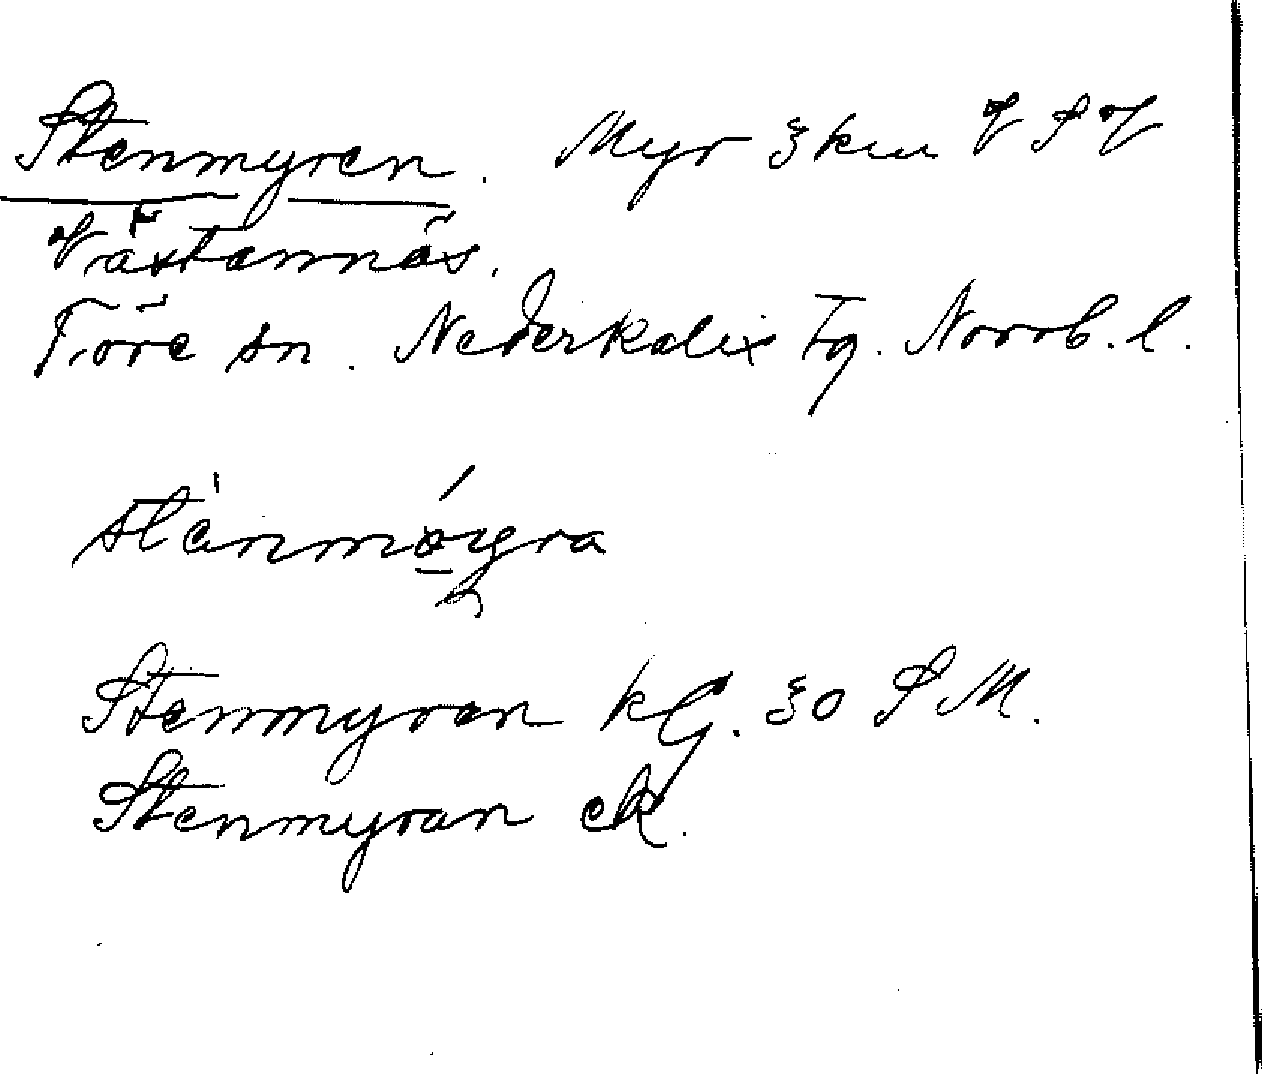 Stenmyren. Myr 3 km V S V
Västannäs.
Töre sn. Nederkalix tg. Norrb. l.
Stenmyran kG. 30 S M.
Stenmyran ek.